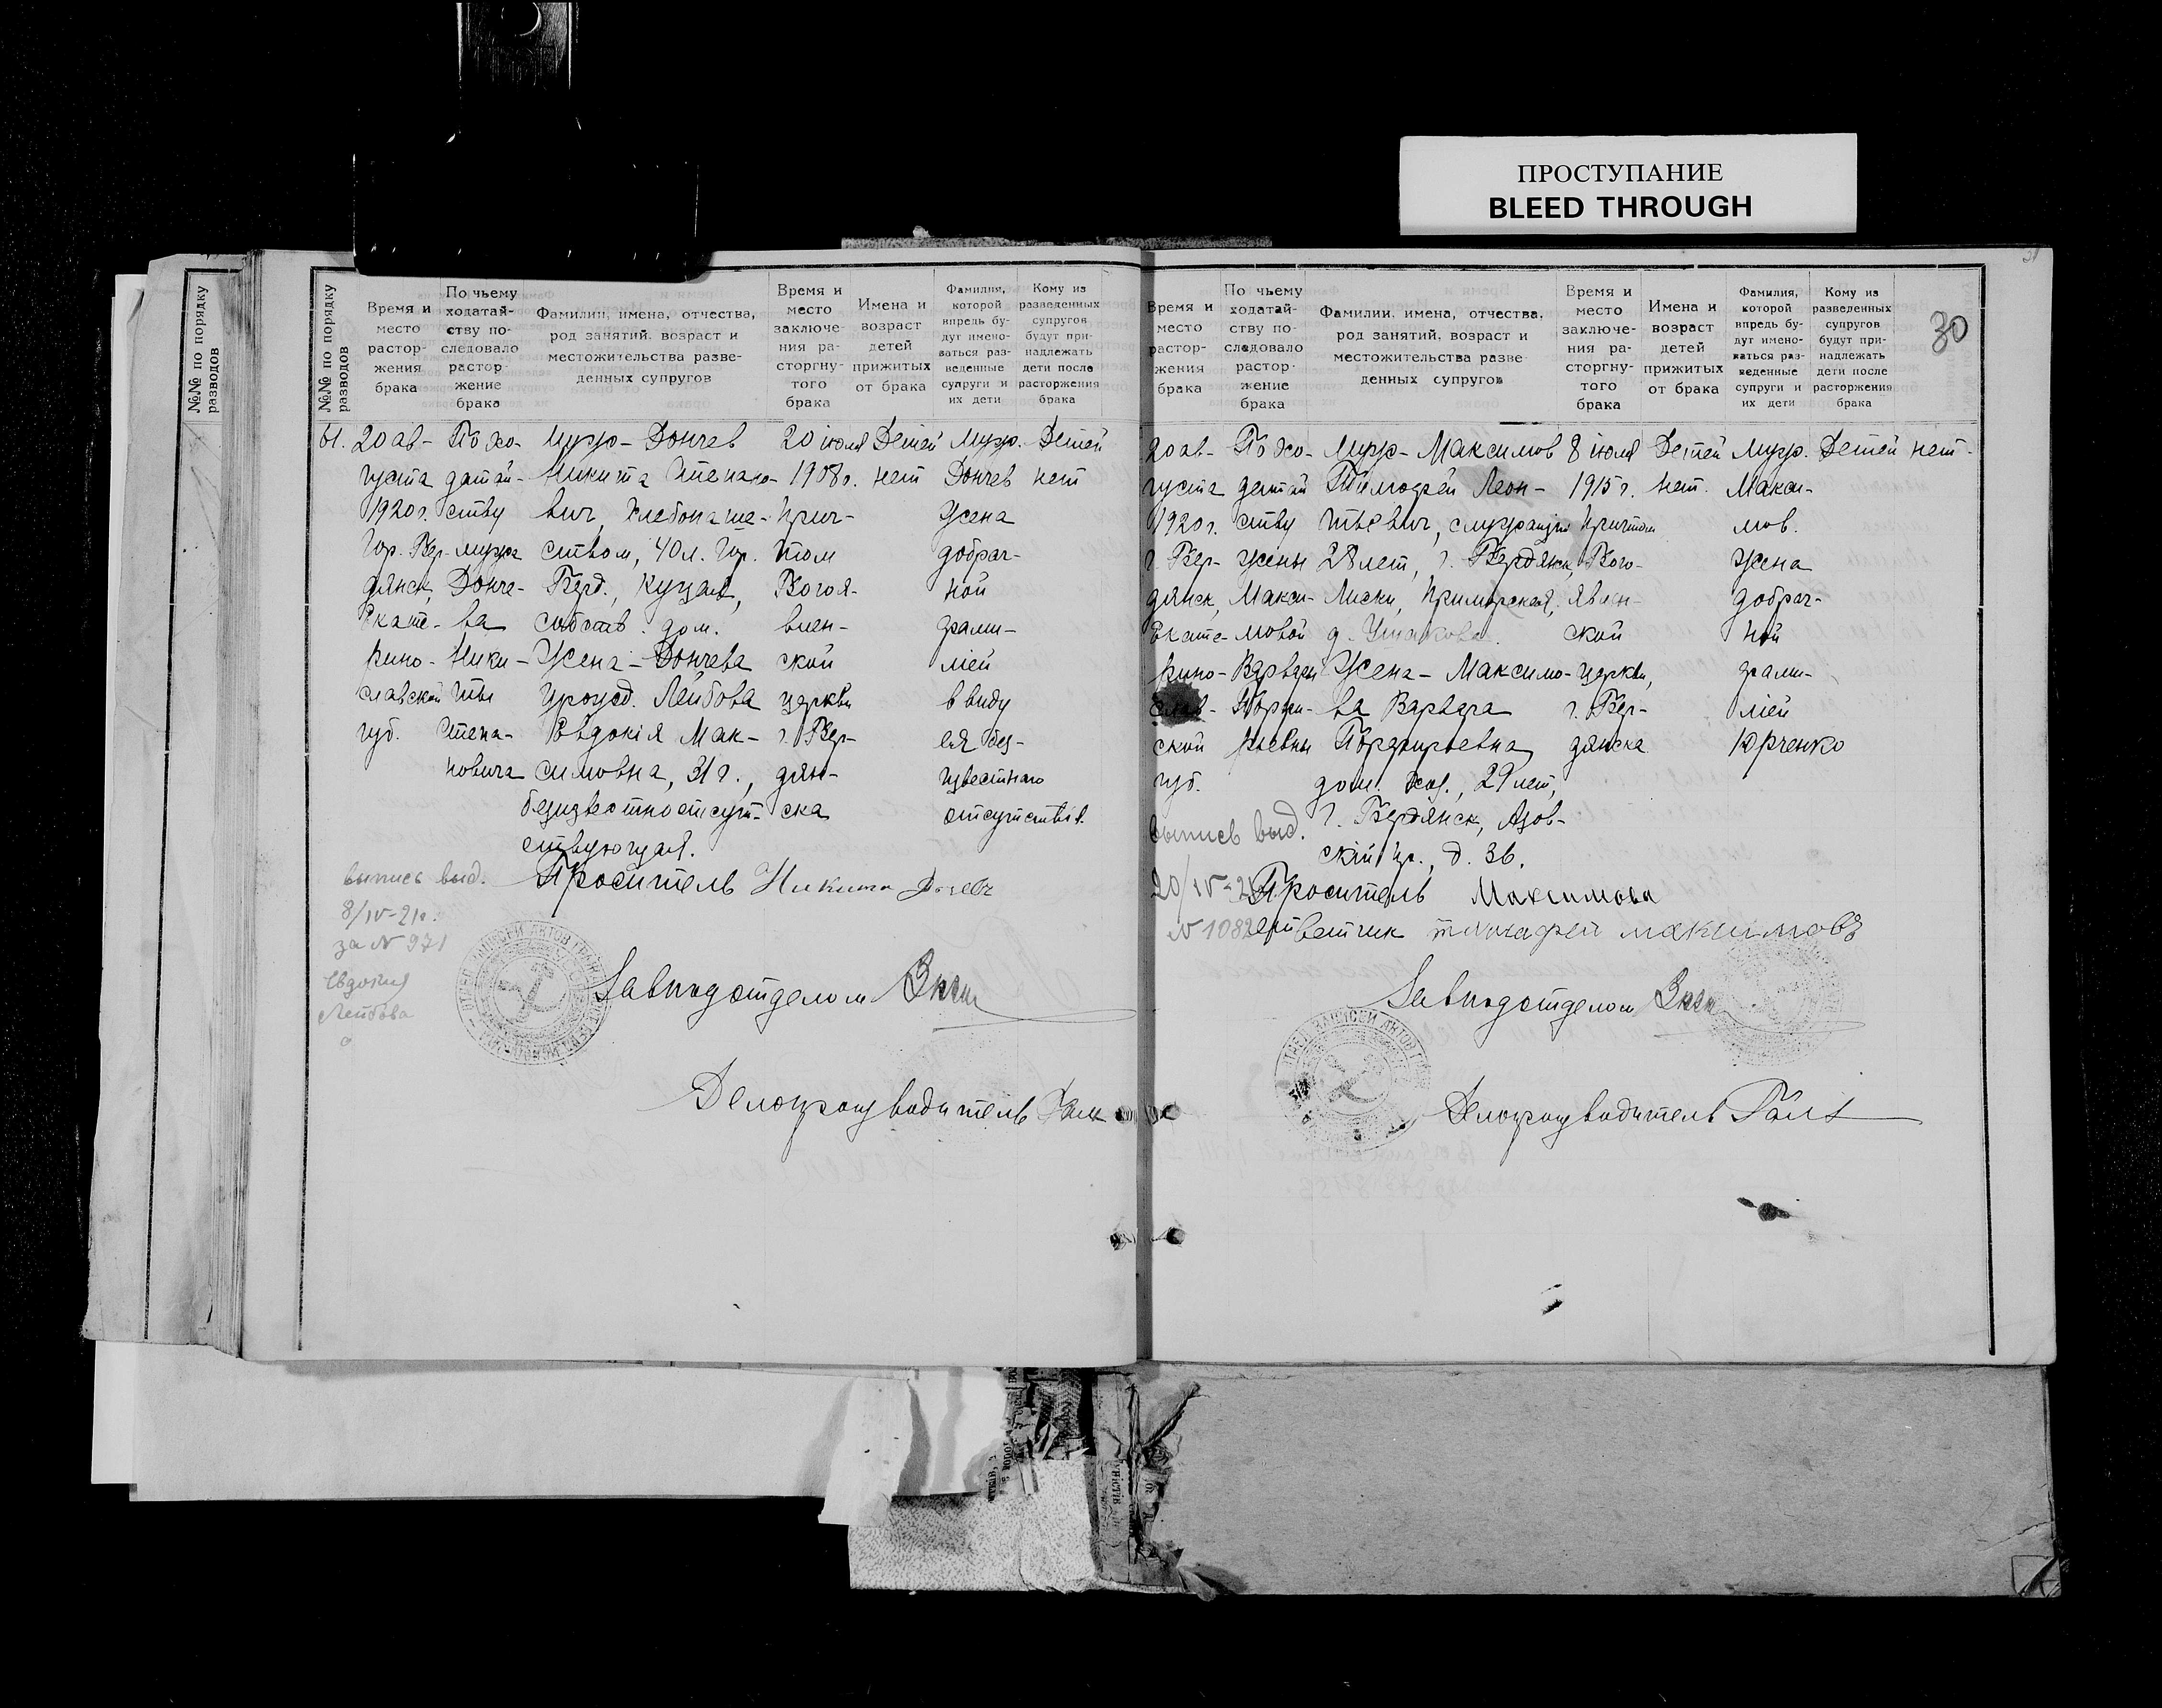 ПРОСТУПАНИЕ
BLEED THROUGH
№№ по порядку
разводов
№№ по порядку
разводов
Время и
место
растор-
жения
брака
По чьему
ходатай-
ству по-
следовало
растор-
жение
брака
Фамилии, имена, отчества,
род занятий, возраст и
местожительства разве-
денных супругов
Время и
место
заключе-
ния ра-
сторгну-
того
брака
Имена и
возраст
детей
прижитых
от брака
Фамилия,
которой
впредь бу-
дут имено-
ваться раз-
веденные
супруги и
их дети
Кому из
разведенных
супругов
будут при-
надлежать
дети после
расторжения
брака
61.
20 ав-
густа
1920 г.
Гор. Бер-
дянск,
Екате-
рино-
славской
губ.
По хо-
датай-
ству
мужа
Донче-
ва
Ники-
ты
Степа-
новича
Муж – Дончев
Никита Степано-
вич, хлебопаше-
ством, 40 л. Гор.
Берд.,
собств. дом.
Жена – Дончева
урожд. Лейбова
Евдокія Мак-
симовна, 31 г.,
безизвестно отсут-
ствующая.
20 июля
1908 г.
Прич-
том
Богоя-
влен-
ской
церкви
г. Бер-
дян-
ска
Детей
нет
Муж.
Дончев
Жена
добрач-
ной
фами-
ліей
в виду
ея без-
известнаго
отсутствія.
Детей
нет
Проситель Никита
выпись выд.
8/IV-21г.
за № 971
Евдокия
Лейбова
Завподотделом
Делопроизводитель
Время и
место
растор-
жения
брака
По чьему
ходатай-
ству по-
следовало
растор-
жение
брака
Фамилии, имена, отчества,
род занятий, возраст и
местожительства разве-
денных супругов
Время и
место
заключе-
ния ра-
сторгну-
того
брака
Имена и
возраст
детей
прижитых
от брака
Фамилия,
которой
впредь бу-
дут имено-
ваться раз-
веденные
супруги и
их дети
Кому из
разведенных
супругов
будут при-
надлежать
дети после
расторжения
брака
30
20 ав-
густа
1920 г.
г. Бер-
дянск,
Екате-
рино-
слав-
ской
губ.
По хо-
датай
ству
жены
Макси-
мовой
Варвары
Порфи-
рьевны
Муж – Максимов
Тимофей Леон-
тьевич, служащий
28 лет, г. Бердянск,
Лиски, Приморская,
д. Ушакова.
Жена – Максимо-
ва Варвара
Порфирьевна,
дом. хоз., 29 лет,
г. Бердянск, Азов-
скій пр., д. 36.
8 июля
1915 г.
Причтом
Бого-
явлен-
ской
церкви,
г. Бер-
дянска
Детей
нет.
Муж.
Макси-
мов.
Жена
добрач-
ной
фами-
ліей
Юрченко
Детей нет.
выпись выд.
20/IV-21
№ 1082
Проситель Максимова
ответчик тимофей максимовъ
Завподотделом
Делопроизводитель